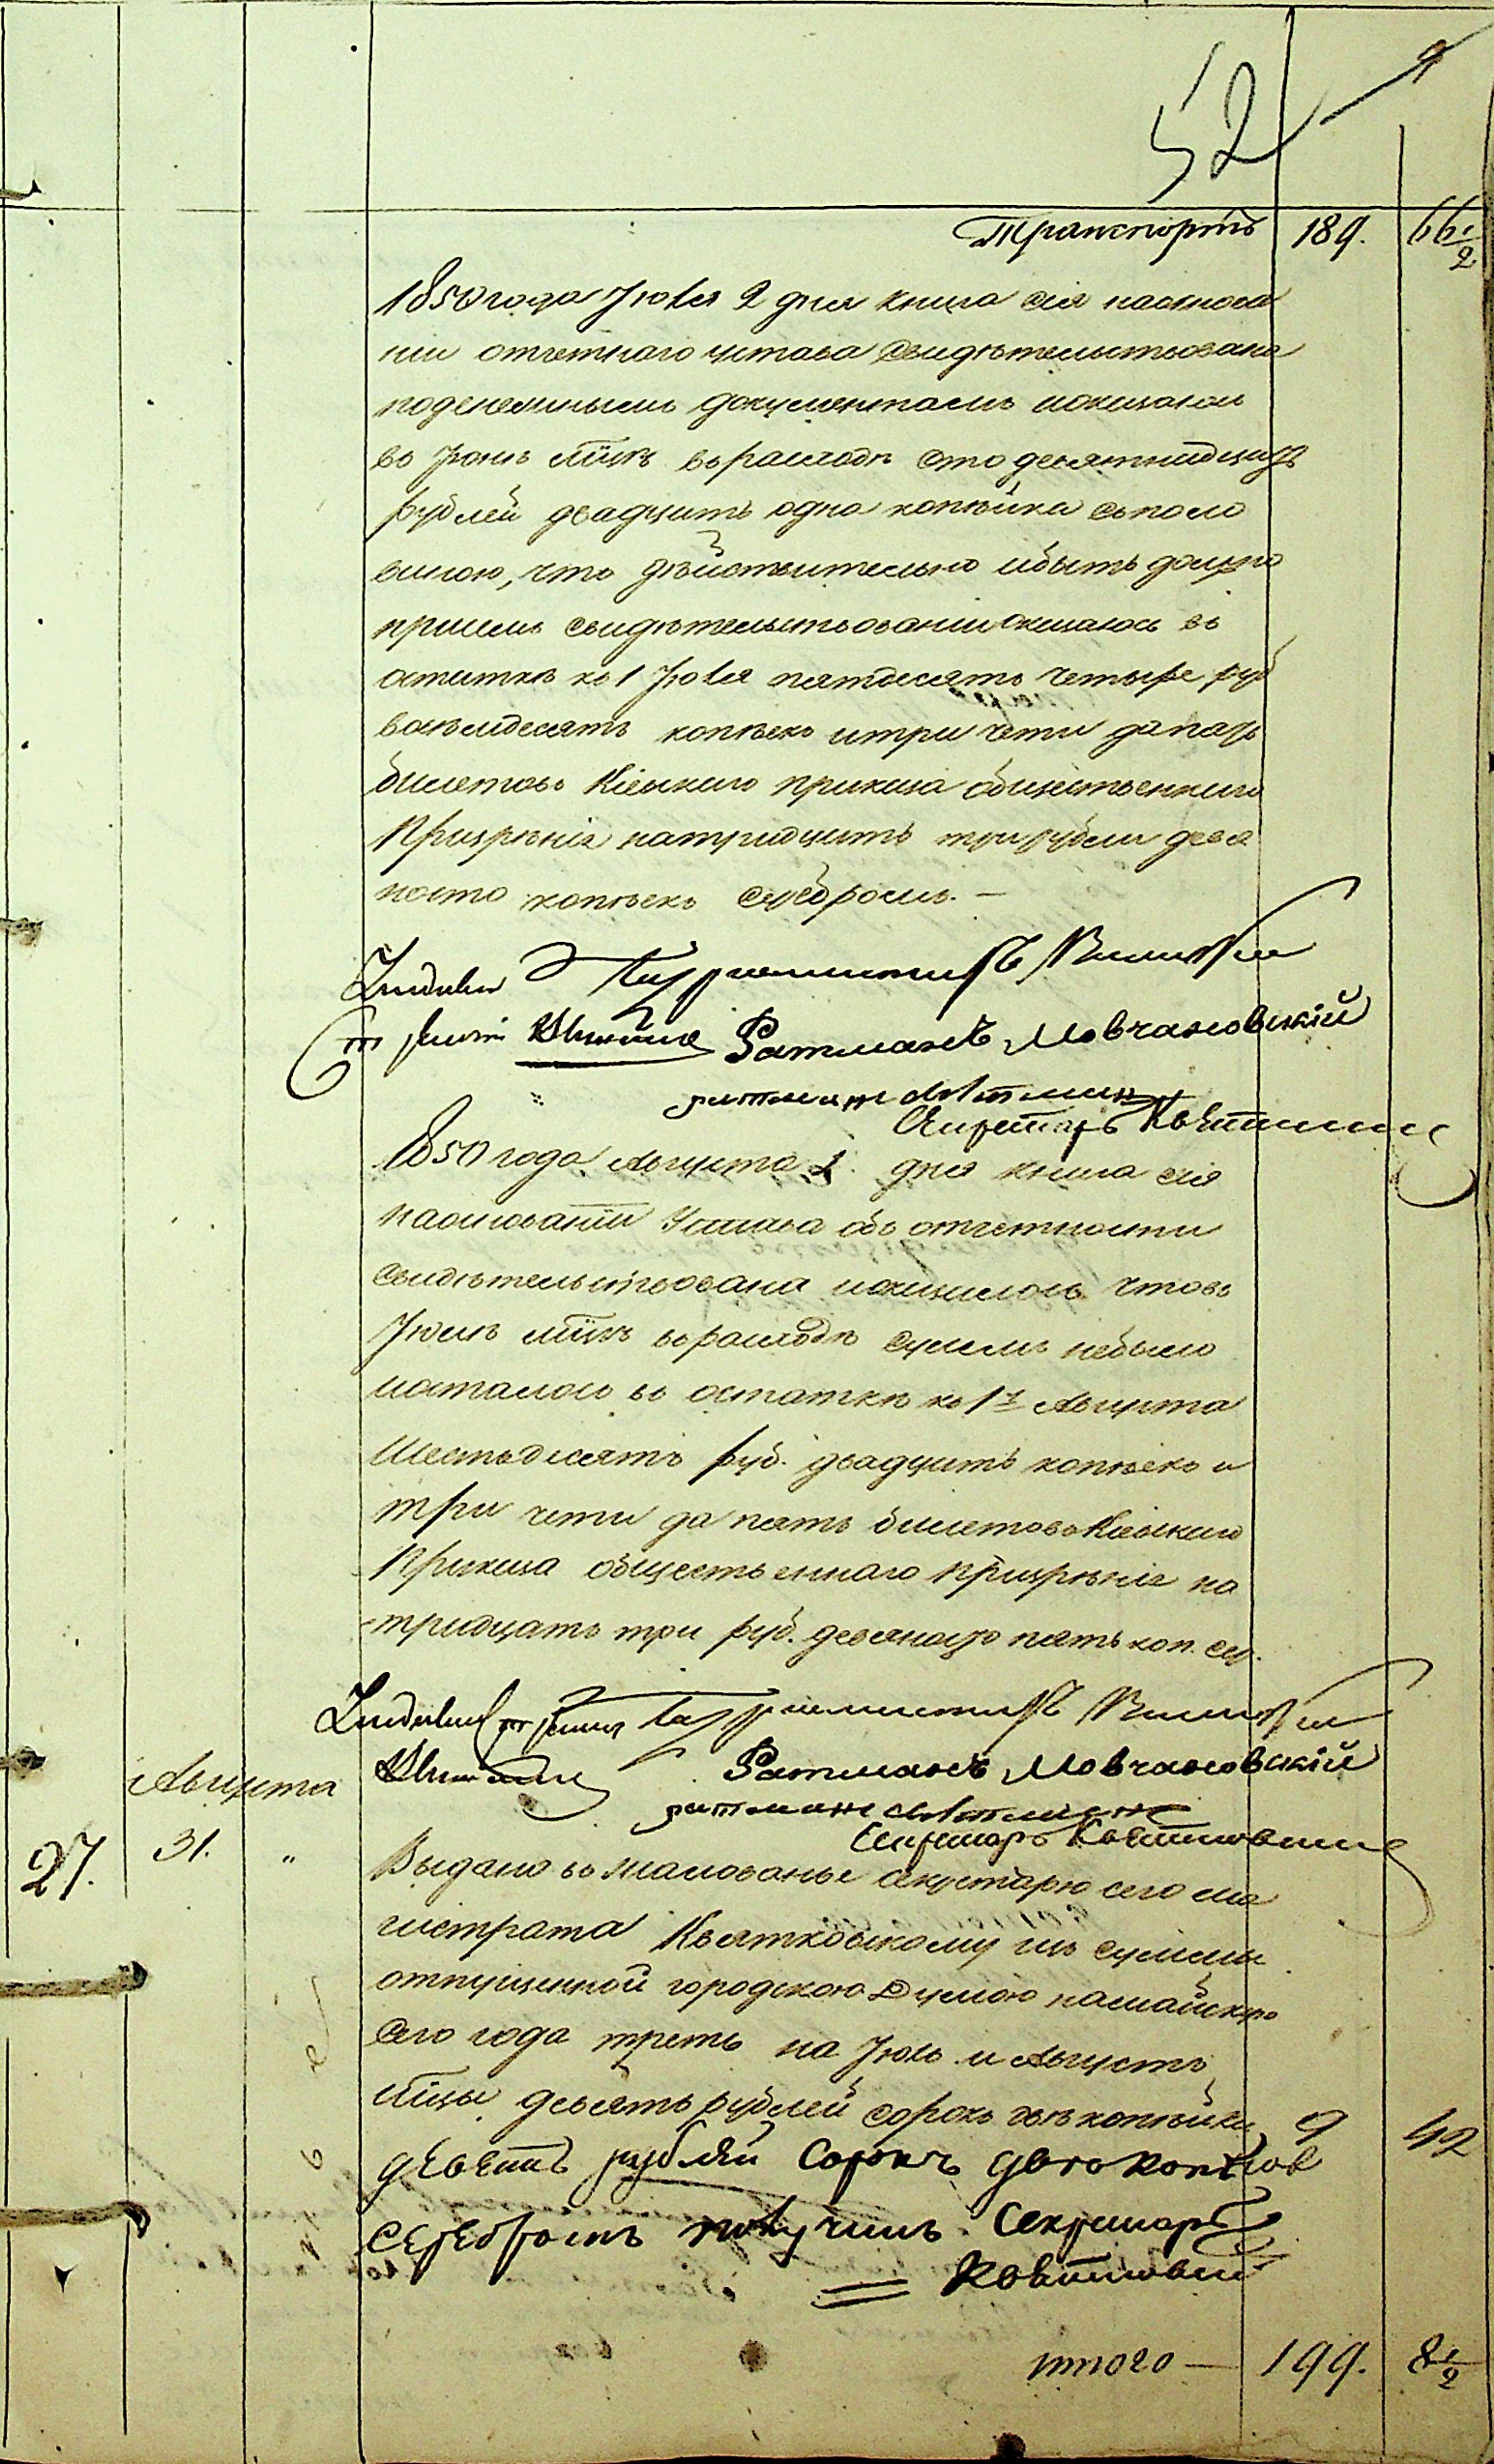 52
Транспортъ 189. 66 1/2
1850 года Іюля 2 дня книга сія наоснова
ніи отчетнаго устава свидѣтельствована
поденежнымъ документамъ иоказалось
въ Іюнѣ мцѣ въ расходѣ сто девятнадцать
рублей двадцать одна копѣйка съполо
виною, что дѣйствительно ибыть должно
присемъ свидѣтельствованіи оказалось въ
остаткѣ къ 1 Іюля пятдесятъ четыре руб
восѣмдесятъ копѣекъ итри чети да пять
билетовъ Кіевскаго приказа общественнаго
Призрѣнія натридцать три рубли девя
носто копѣекъ серебромъ. —
Бургомистръ
Ратманъ Мовчановскій
ратманъ
Секретарь
1850 года Августа 1 дня книга сія
наоснованіи Устава объ отчетности
свидѣтельствована иоказалось чтовъ
Іюлѣ мцѣ врасходѣ суммъ небыло
иосталось въ остаткѣ къ 1 Августа
Шестьдесятъ руб. двадцать копѣекъ и
три чети да пять билетовъ Кіевскаго
Приказа общественнаго призрѣнія на
тридцать три руб. девяносто пять коп. сер.
Бургомистръ
Ратманъ Мовчановскій
ратманъ
Секретарь
Августа
27. 31. "
Выдано въ жалованье секретарю сего ма
гистрата Квятковскому изъ суммы
отпущенной городскою Думою намайскую
сего года треть на Іюль и Августъ
мцы девять рублей сорокъ двѣ копѣйки 9 42
девять рублей сорокъ две копѣекъ
серебромъ получилъ Секретарь
Квятковскій
итого — 199. 8 1/2